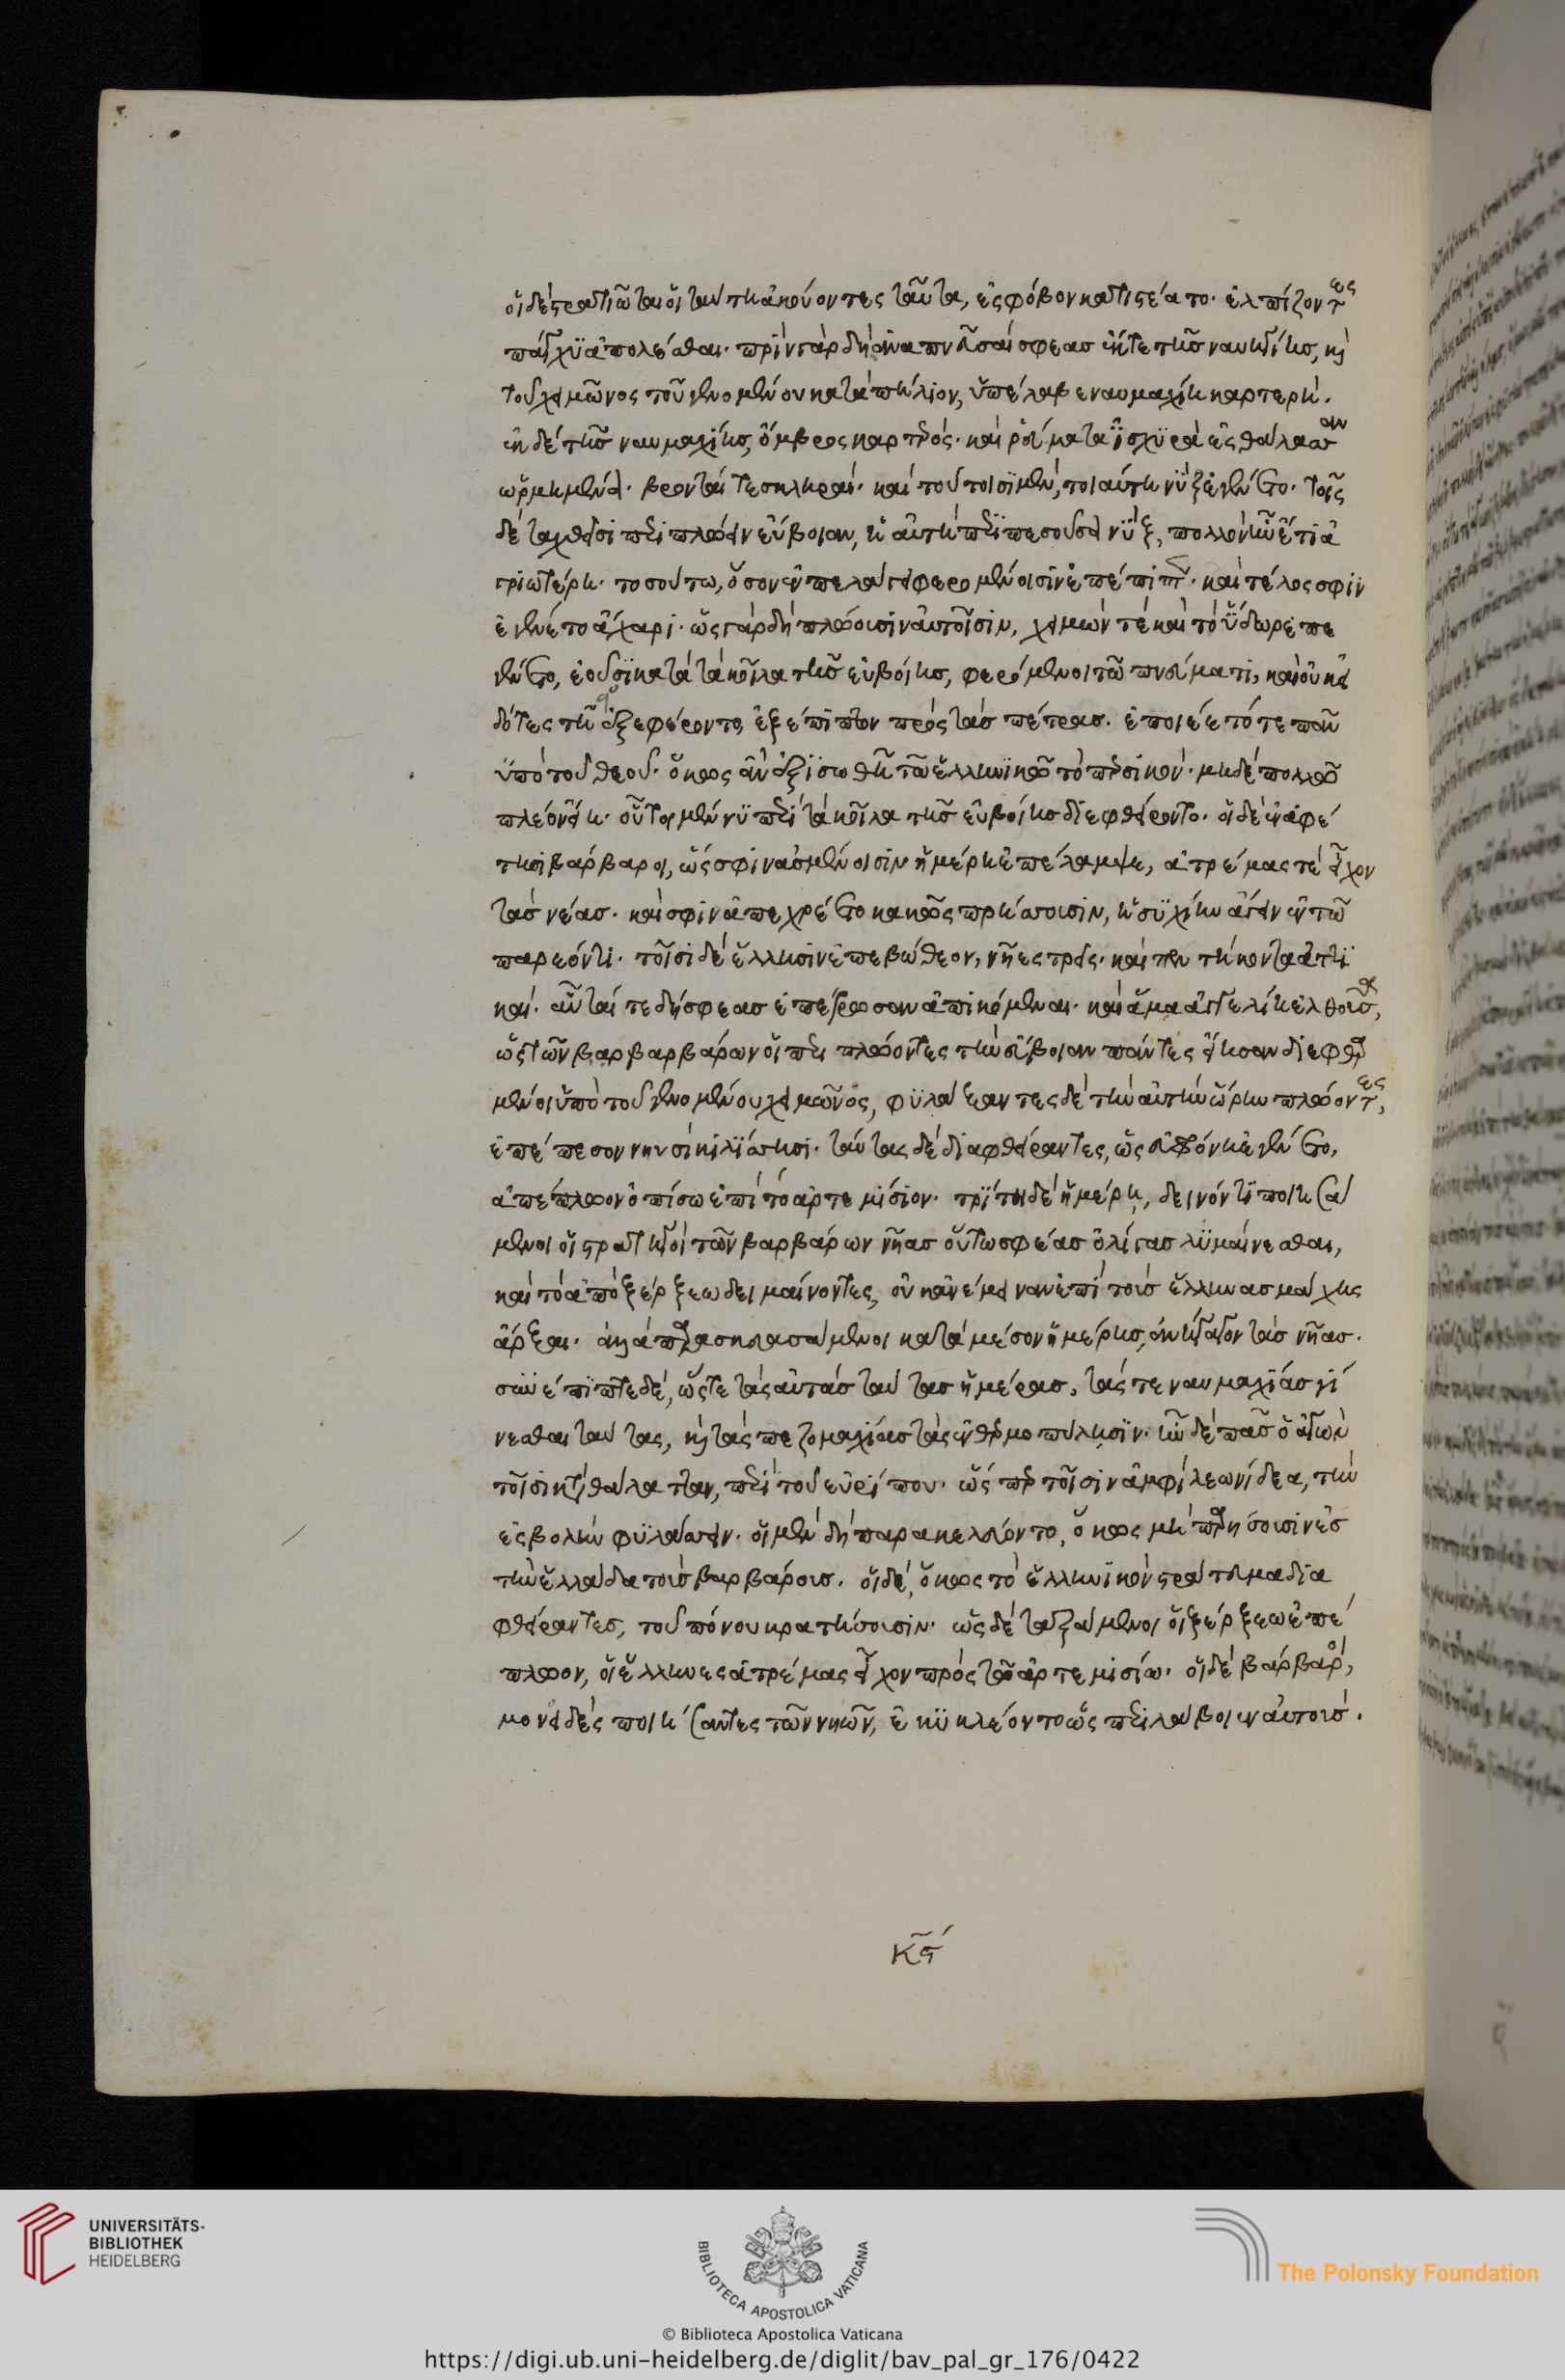 οἱ δὲ στρατιῶται οἱ ταύτη ἀκούοντες ταῦτα, ἐς φόβον κατιστέατο· ἐλπίζοντες
πάγχυ ἀπολέεσθαι· πρὶν γὰρ δὴ ἀναπνεῦσαι σφέας ἔκ τε τῆς ναυηγίης, καὶ
τοῦ χειμῶνος τοῦ γενομένου κατὰ πήλιον, ὑπέλαβε ναυμαχίη καρτερή.
ἐκ δὲ τῆς ναυμαχίης, ὄμβρος καρτερός· καὶ ῥεύματα ἰσχυρὰ ἐς θάλασσαν
ὡρμημένα· βρονταί τε σκληραί· καὶ τούτοισι μὲν, τοιαύτη νὺξ ἐγένετο· τοῖς
δὲ ταχθεῖσι περιπλώειν εὔβοιαν, ἡ αὐτὴ περιπεσοῦσα νὺξ, πολλὸν ἦν ἔτι ἀ
γριωτέρη· τοσούτω, ὅσον ἐν πελάγει φερομένοισιν ἐπέπιπτε· καὶ τέλος σφιν
ἐγένετο ἄχαρι· ὡς γὰρ δὴ πλώουσιν αὐτοῖσιν, χειμών τε καὶ τὸ ὕδωρ ἐπε
γένετο, ἐοῦσι κατὰ τὰ κοῖλα τῆς εὐβοίης, φερόμενοι τῶ πνεύματι, καὶ οὐκ εἰ
δότες τῆ ἐξεφέροντο, ἐξέπιπτον πρὸς τὰς πέτρας. ἐποιέετό τε πᾶν
ὑπὸ τοῦ θεοῦ· ὅκως ἂν ἐξισωθῆ τῶ ἑλληνικῶ τὸ περσικόν· μηδὲ πολλῶ
πλέον εἴη· οὗτοι μέν νυ περὶ τὰ κοῖλα τῆς εὐβοίης διεφθείροντο· οἱ δὲ ἐν ἀφέ
τησι βάρβαροι, ὥς σφιν ἀσμένοισιν ἡμέρη ἐπέλαμψε, ἀτρέμας τε εἶχον
τὰς νέας· καί σφιν ἀπεχρέετο κακῶς πρήσσουσιν, ἡσυχίην ἄγειν ἐν τῶ
παρεόντι· τοῖσι δὲ ἕλλησιν ἐπεβώθεον, νῆες τρεῖς· καὶ πεντήκοντα ἀττι
καί· αὗταί τε δή σφεας ἐπέρρωσαν ἀπικόμεναι· καὶ ἅμα ἀγγελίη ἐλθοῦσα,
ὡς τῶν βαρβαρβάρων οἱ περιπλώοντες τὴν εὔβοιαν πάντες εἴησαν διεφθαρ
μένοι ὑπὸ τοῦ γενομένου χειμῶνος, φυλάξαντες δὲ τὴν αὐτὴν ὥρην πλώοντες,
ἐπέπεσον νηυσὶ κιλίσσησι· ταύτας δὲ διαφθείραντες, ὡς εὐφρόνη ἐγένετο,
ἀπέπλωον ὀπίσω ἐπὶ τὸ ἀρτεμίσιον· τρίτη δὲ ἡμέρη, δεινόν τι ποιησά
μενοι οἱ στρατηγοὶ τῶν βαρβάρων νῆας οὕτω σφέας ὀλίγας λυμαίνεσθαι,
καὶ τὸ ἀπὸ ξέρξεω δειμαίνοντες, οὐκ ἀνέμειναν ἐπὶ τοὺς ἕλληνας μάχης
ἄρξαι· ἀλλὰ παρασκευασάμενοι κατὰ μέσον ἡμέρης, ἀνήγαγον τὰς νῆας·
συνέπιπτε δὲ, ὥστε τὰς αὐτὰς ταύτας ἡμέρας, τάς τε ναυμαχίας γί
νεσθαι ταύτας, καὶ τὰς πεζομαχίας τὰς ἐν θερμοπύλησιν· ἦν δὲ πᾶς ὁ ἀγὼν
τοῖσι κατὰ θάλατταν, περὶ τοῦ εὐρίπου· ὥσπερ τοῖσιν ἀμφὶ λεωνίδεα, τὴν
ἐσβολὴν φυλάσσειν· οἱ μὲν δὴ παρακελεύοντο, ὅκως μὴ παρήσουσιν ἐς
τὴν ἑλλάδα τοὺς βαρβάρους. οἱ δὲ, ὅκως τὸ ἑλληνικὸν στράτευμα δια
φθείραντες, τοῦ πόνου κρατήσουσιν· ὡς δὲ ταξάμενοι οἱ ξέρξεω ἐπέ
πλωον, οἱ ἕλληνες ἀτρέμας εἶχον πρὸς τῶ ἀρτεμισίω· οἱ δὲ βάρβαροι,
μονειδὲς ποιήσαντες τῶν νηῶν, ἐκυκλέοντο ὡς περιλάβοιεν αὐτούς.
κϛ´
UNIVERSITÄTS-
BIBLIOTHEK
HEIDELBERG
BIBLIOTECA APOSTOLICA VATICANA
The Polonsky Foundation
© Biblioteca Apostolica Vaticana
https://digi.ub.uni-heidelberg.de/diglit/bav_pal_gr_176/0422